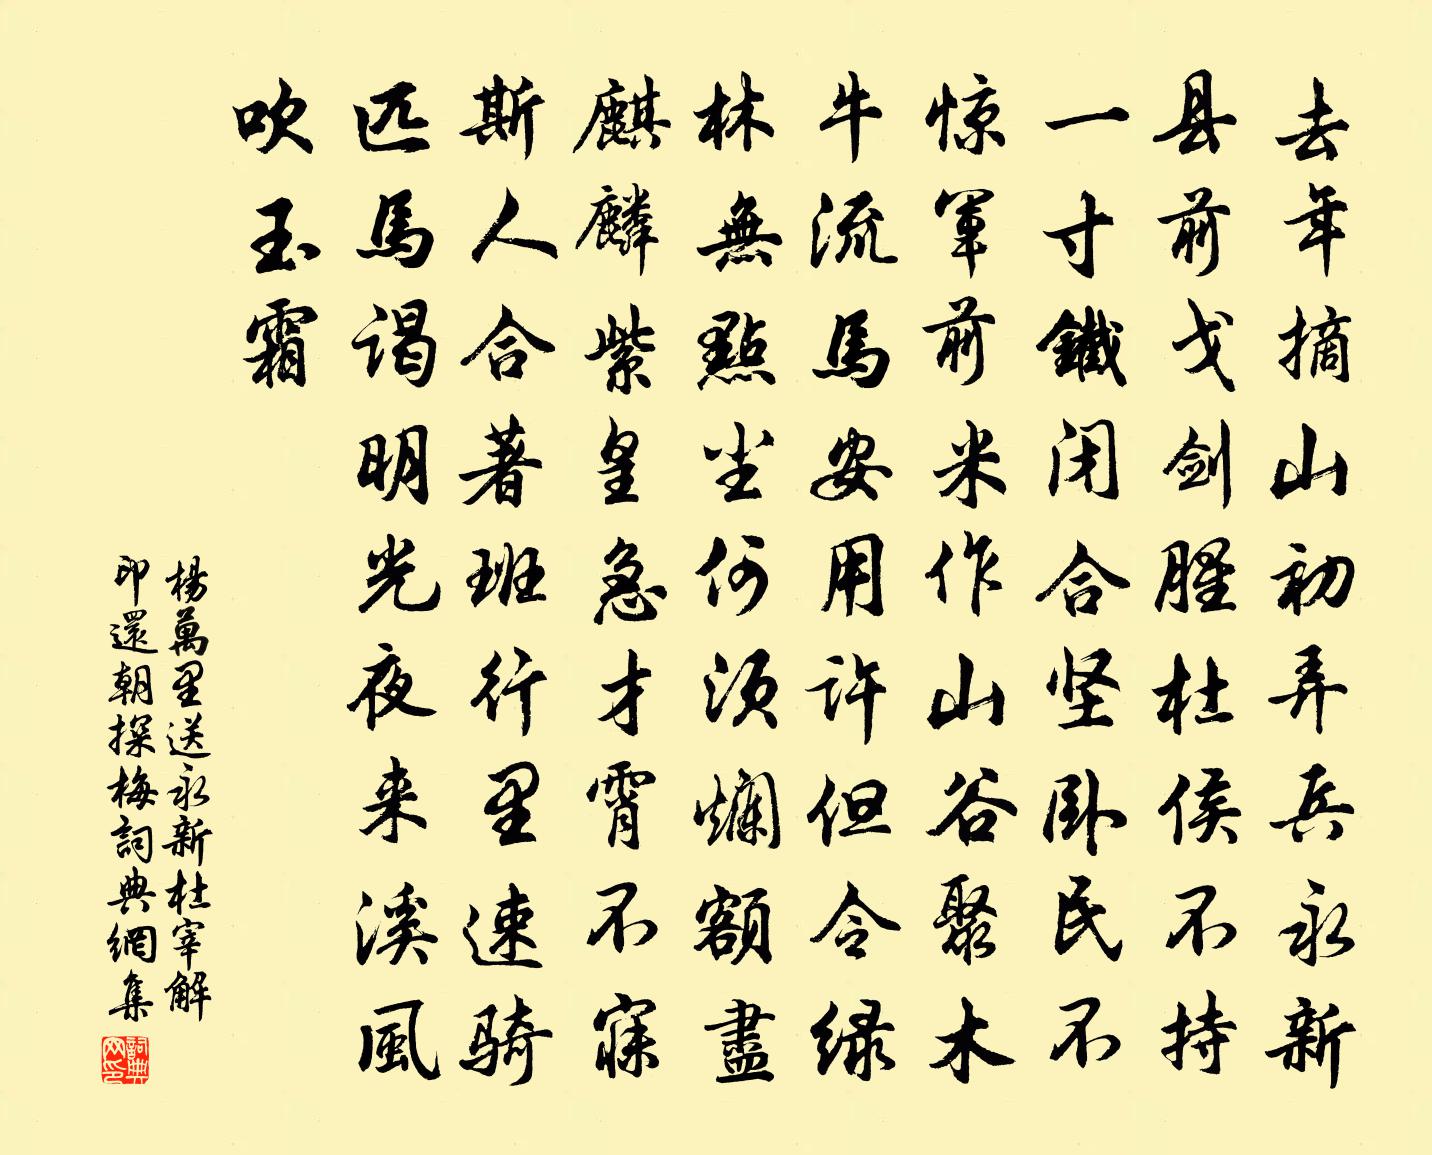 去年摘山初弄兵永新
县前戈剑腥杜侯不持
一寸鐵闭合坚卧民不
惊軍前米作山谷聚木
牛流馬安用许但令绿
林無點尘何须爛額盡
麒麟紫皇急才霄不寐
斯人合著班行里速骑
匹馬谒明光夜来溪風
吹玉霜
楊萬里送永新杜宰解
印還朝探梅詞典網集
詞典网印